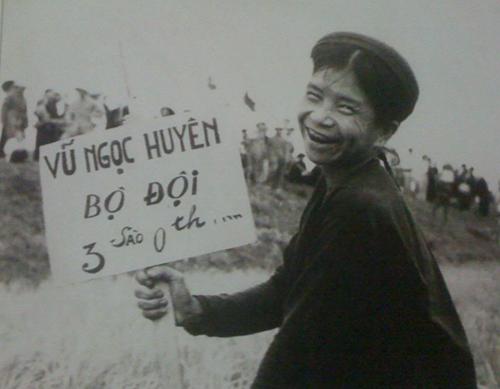 VŨ NGỌC HUYÊN
BỘ ĐỘI
3 SÀO 0 th....